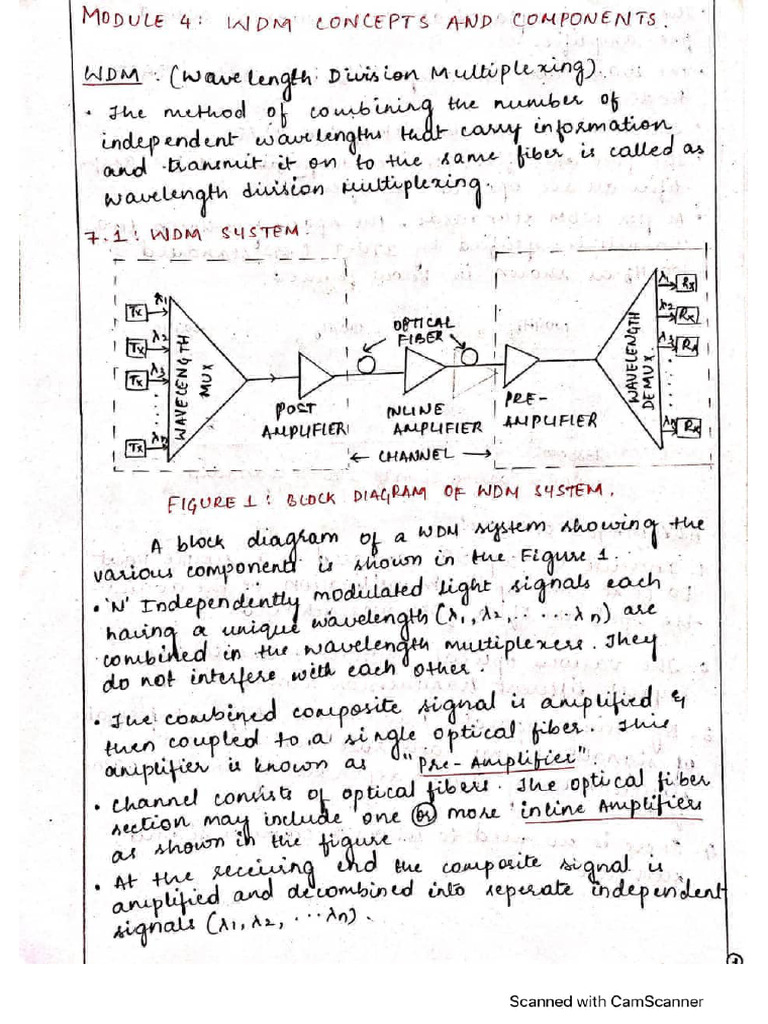 MODULE 4: WDM CONCEPTS AND COMPONENTS.
WDM. (Wavelength Division Multiplexing).
• The method of combining the number of
independent wavelengths that carry information
and transmit it on to the same fiber is called as
wavelength division Multiplexing.
7.1: WDM SYSTEM.
Tx λ1
Tx λ2
Tx λ3
Tx λn
WAVELENGTH
MUX
POST
AMPLIFIER
OPTICAL
FIBER
INLINE
AMPLIFIER
PRE-
AMPLIFIER
WAVELENGTH
DEMUX.
λ1 Rx
λ2 Rx
λ3 Rx
λn Rx
← CHANNEL →
FIGURE 1: BLOCK DIAGRAM OF WDM SYSTEM.
A block diagram of a WDM system showing the
various components is shown in the Figure 1.
• 'N' Independently modulated light signals each
having a unique wavelength (λ1, λ2, ..... λn) are
combined in the wavelength multiplexers. They
do not interfere with each other.
• The combined composite signal is amplified &
then coupled to a single optical fiber. This
amplifier is known as "Pre-Amplifier".
• Channel consists of optical fibers. The optical fiber
section may include one or more inline Amplifiers
as shown in the figure
• At the receiving end the composite signal is
amplified and decombined into seperate independent
signals (λ1, λ2, ... λn).
1
Scanned with CamScanner